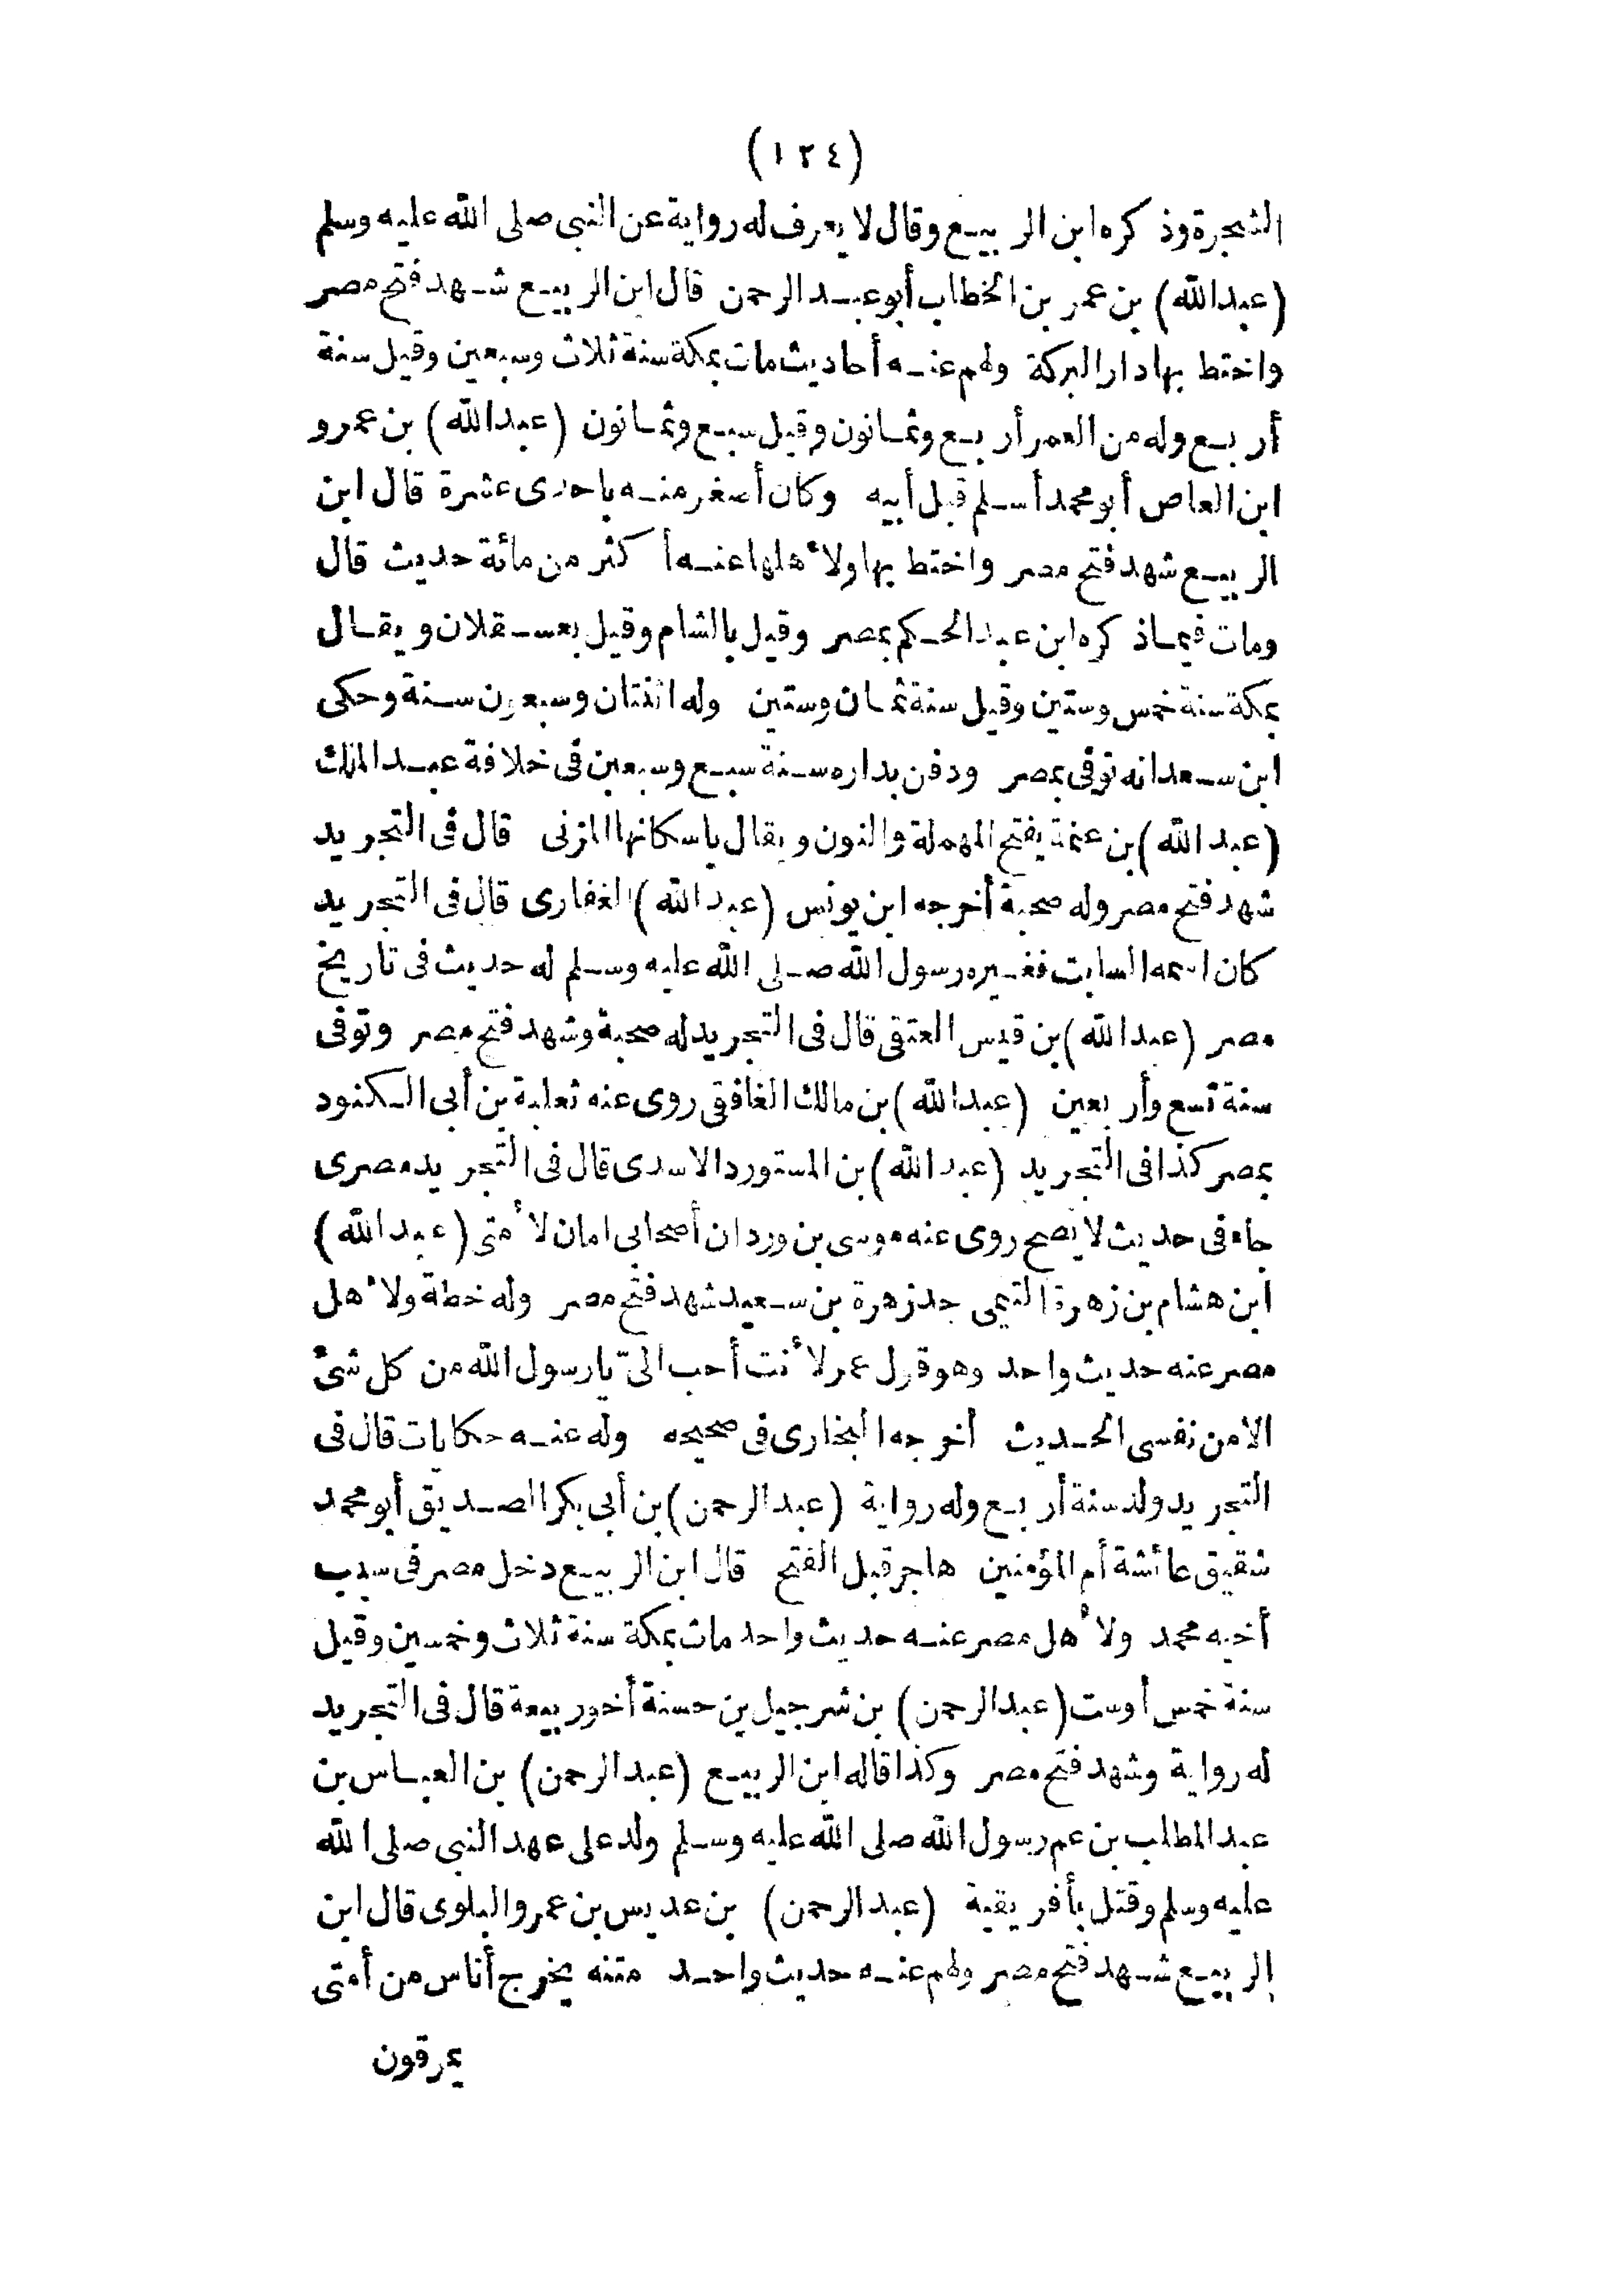 (١٢٤)
الشجرة وذكره ابن الربيع وقال لا يعرف له رواية عن النبى صلى الله عليه وسلم
(عبدالله) بن عمر بن الخطاب أبو عبد الرحمن قال ابن الربيع شهد فتح مصر
واختط بها دار البركة ولهم عنه أحاديث مات بمكة سنة ثلاث وسبعين وقيل سنة
أربع وله من العمر أربع وثمانون وقيل سبع وثمانون (عبدالله) بن عمرو
ابن العاص أبو محمد أسلم قبل أبيه وكان أصغر منه باحدى عشرة قال ابن
الربيع شهد فتح مصر واختط بها ولأهلها عنه أكثر من مائة حديث قال
ومات فيما ذكره ابن عبد الحكم بمصر وقيل بالشام وقيل بعسقلان ويقال
بمكة سنة خمس وستين وقيل سنة ثمان وستين وله اثنتان وسبعون سنة وحكى
ابن سعد انه توفى بمصر ودفن بداره سنة سبع وسبعين فى خلافة عبد الملك
(عبد الله) بن عنمة بفتح المهملة والنون ويقال باسكانها المزنى قال فى التجريد
شهد فتح مصر وله صحبة أخرجه ابن يونس (عبد الله) الغفارى قال فى التجريد
كان اسمه السابت فغيره رسول الله صلى الله عليه وسلم له حديث فى تاريخ
مصر (عبدالله) بن قيس العتقى قال فى التجريد له صحبة وشهد فتح مصر وتوفى
سنة تسع وأربعين (عبدالله) بن مالك الغافقى روى عنه ثعلبة بن أبى الكنود
بمصر كذا فى التجريد (عبد الله) بن المستورد الاسدى قال فى التجريد مصرى
جاء فى حديث لا يصح روى عنه موسى بن وردان أصحابى امان لأمتى (عبد الله)
ابن هشام بن زهرة التيمى جد زهرة بن سعيد شهد فتح مصر وله خطة ولأهل
مصر عنه حديث واحد وهو قول عمر لأنت أحب الىّ يا رسول الله من كل شئ
الا من نفسى الحديث أخرجه البخارى فى صحيحه وله عنه حكايات قال فى
التجريد ولد سنة أربع وله رواية (عبد الرحمن) بن أبى بكر الصديق أبو محمد
شقيق عائشة أم المؤمنين هاجر قبل الفتح قال ابن الربيع دخل مصر فى سبب
أخيه محمد ولأهل مصر عنه حديث واحد مات بمكة سنة ثلاث وخمسين وقيل
سنة خمس أوست (عبد الرحمن) بن شرحبيل بن حسنة أخو ربيعة قال فى التجريد
له رواية وشهد فتح مصر وكذا قاله ابن الربيع (عبد الرحمن) بن العباس بن
عبد المطلب بن عم رسول الله صلى الله عليه وسلم ولد على عهد النبى صلى الله
عليه وسلم وقتل بأفريقية (عبد الرحمن) بن عديس بن عمرو البلوى قال ابن
الربيع شهد فتح مصر ولهم عنه حديث واحد متنه يخرج أناس من أمتى
يمرقون